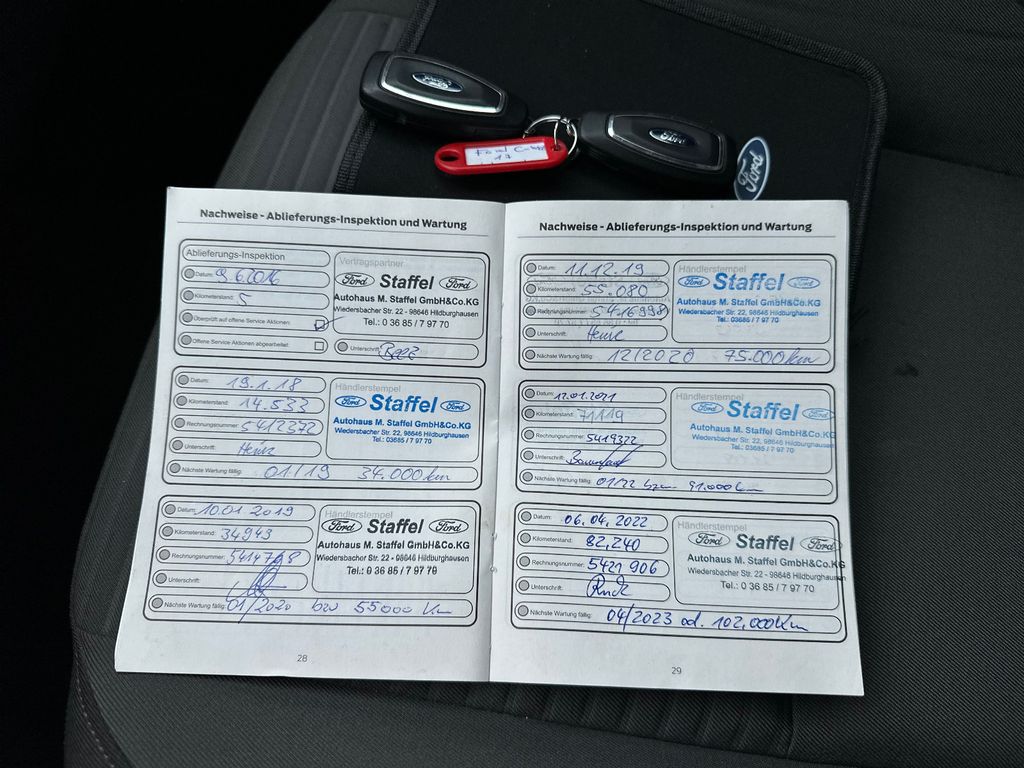 Ford
Ford
Ford
17
Nachweise - Ablieferungs-Inspektion und Wartung
Ablieferungs-Inspektion
Datum: 9.6.2016
Kilometerstand: 5
Überprüft auf offene Service Aktionen:
Offene Service Aktionen abgearbeitet:
Vertragspartner
Ford Staffel Ford
Autohaus M. Staffel GmbH&Co.KG
Wiedersbacher Str. 22 - 98646 Hildburghausen
Tel.: 0 36 85 / 7 97 70
Unterschrift:
Datum: 19.1.18
Kilometerstand: 14.533
Rechnungsnummer: 5412372
Unterschrift:
Nächste Wartung fällig: 01/19 34.000 km
Händlerstempel
Ford Staffel Ford
Autohaus M. Staffel GmbH&Co.KG
Wiedersbacher Str. 22, 98646 Hildburghausen
Tel.: 03685 / 7 97 70
Datum: 10.01 2019
Kilometerstand: 34943
Rechnungsnummer:
Unterschrift:
Nächste Wartung fällig: 01/2020 bzw 55000 Km
Händlerstempel
Ford Staffel Ford
Autohaus M. Staffel GmbH&Co.KG
Wiedersbacher Str. 22 - 98646 Hildburghausen
Tel.: 0 36 85 / 7 97 70
28
Nachweise - Ablieferungs-Inspektion und Wartung
Datum: 11.12.19
Kilometerstand: 55.080
Rechnungsnummer: 5416998
Unterschrift:
Nächste Wartung fällig: 12/2020 75.000km
Händlerstempel
Ford Staffel Ford
Autohaus M. Staffel GmbH&Co.KG
Wiedersbacher Str. 22, 98646 Hildburghausen
Tel.: 03685 / 7 97 70
Datum: 12.01.2021
Kilometerstand: 71119
Rechnungsnummer: 5419322
Unterschrift:
Nächste Wartung fällig: 01/22 bzw. 91.000 km
Händlerstempel
Ford Staffel Ford
Autohaus M. Staffel GmbH&Co.KG
Wiedersbacher Str. 22, 98646 Hildburghausen
Tel.: 03685 / 7 97 70
Datum: 06.04.2022
Kilometerstand: 82,240
Rechnungsnummer: 5421 906
Unterschrift:
Nächste Wartung fällig: 04/2023 od. 102,000Km
Händlerstempel
Ford Staffel Ford
Autohaus M. Staffel GmbH&Co.KG
Wiedersbacher Str. 22 - 98646 Hildburghausen
Tel.: 0 36 85 / 7 97 70
29